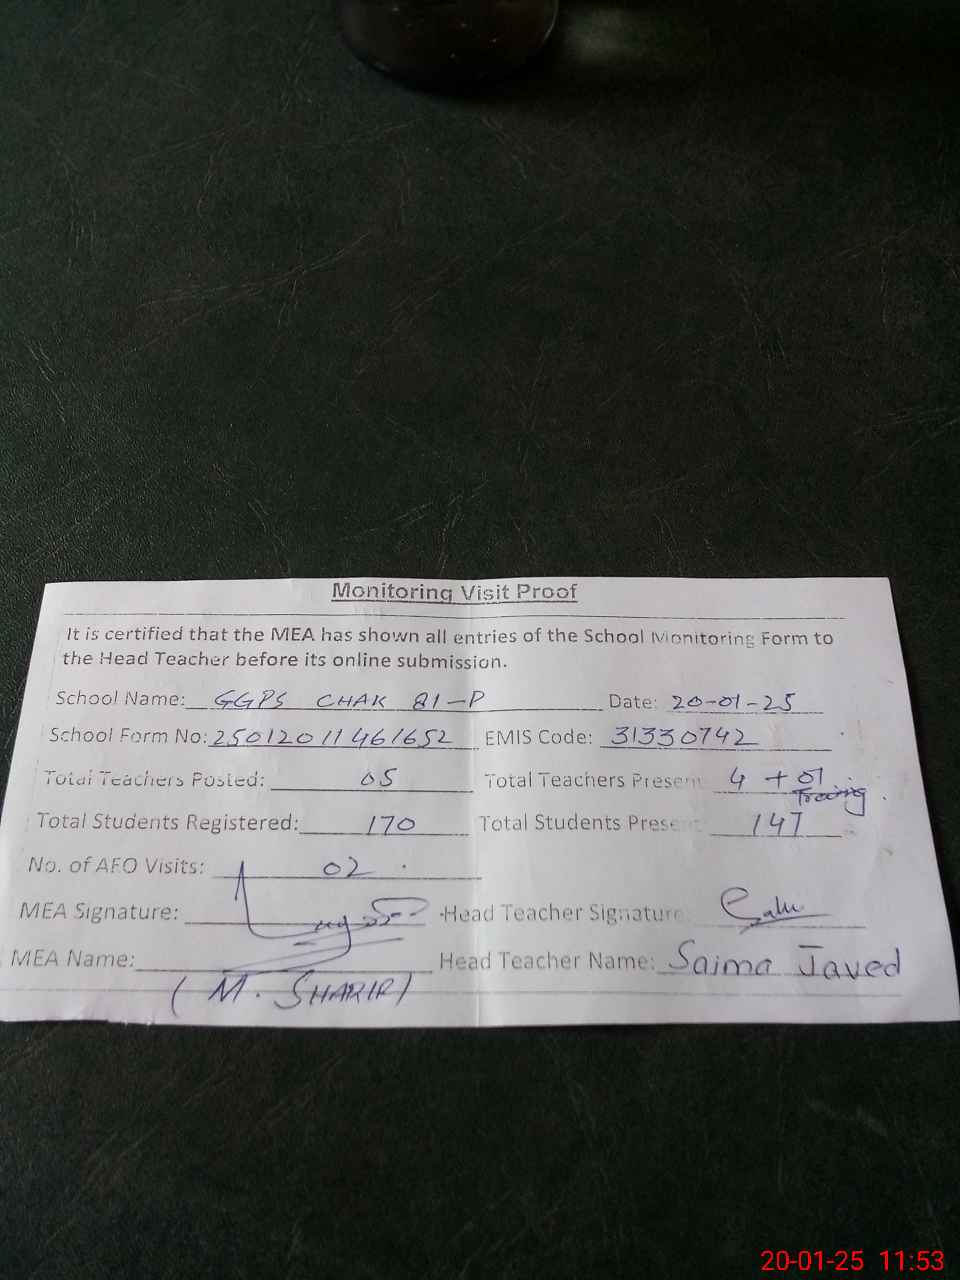 Monitoring Visit Proof
It is certified that the MEA has shown all entries of the School Monitoring Form to
the Head Teacher before its online submission.
School Name: GGPS CHAK 81-P Date: 20-01-25
School Form No: 25012011461652 EMIS Code: 31330742
Total Teachers Posted: 05 Total Teachers Present 4 + 01
Training
Total Students Registered: 170 Total Students Present 147
No. of AEO Visits: 02
MEA Signature: Head Teacher Signature:
MEA Name: Head Teacher Name: Saima Javed
(M. SHARIF)
20-01-25 11:53